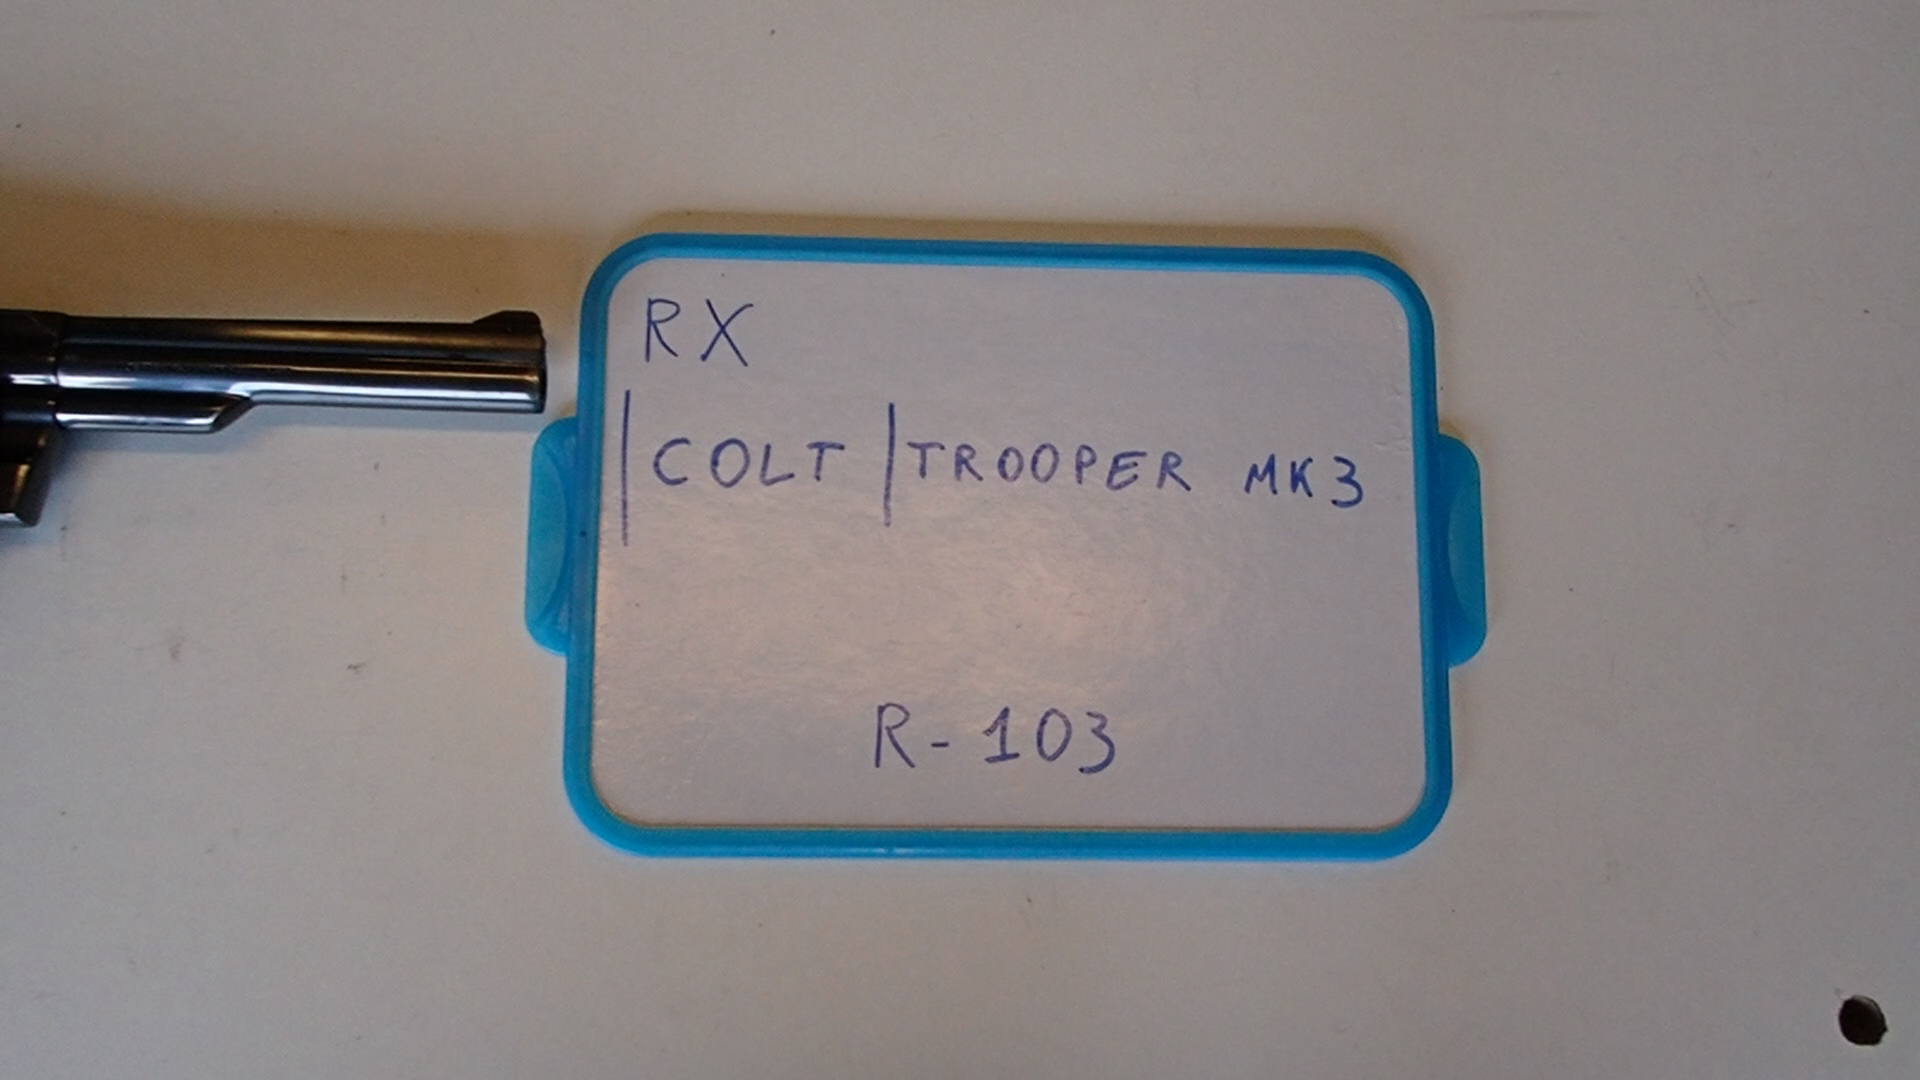 RX
| COLT | TROOPER MK3
R-103